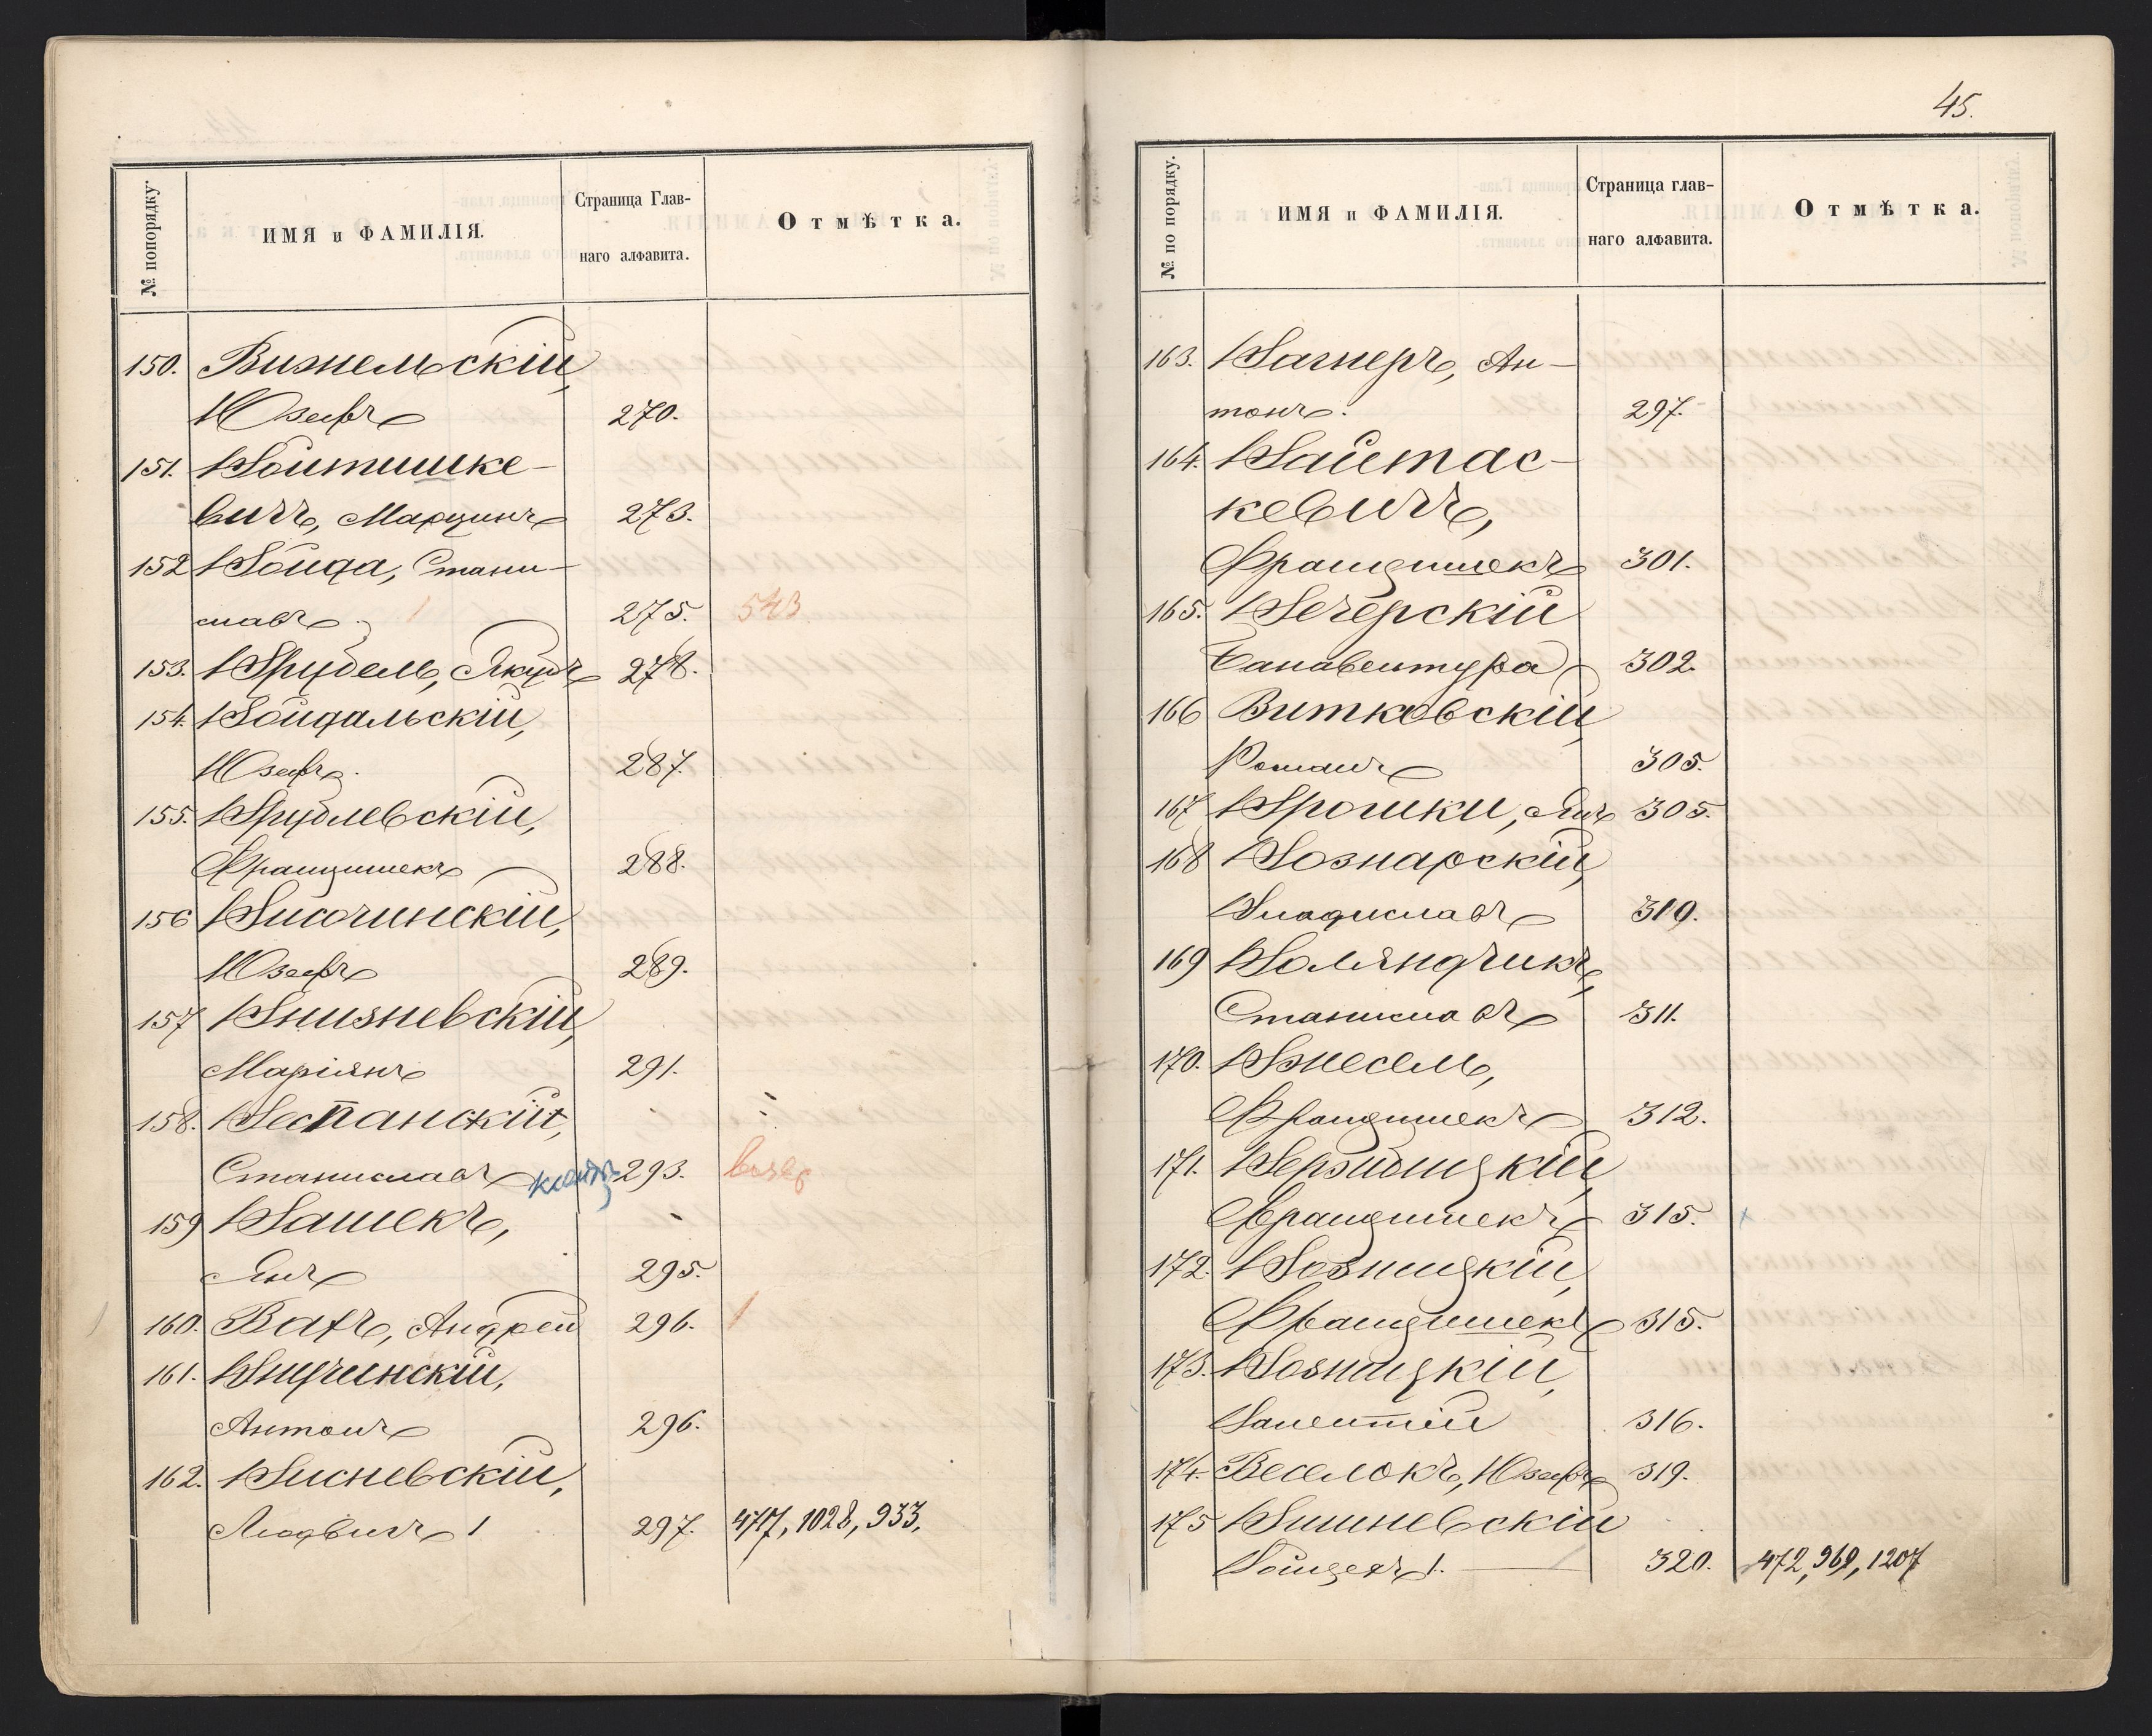 № попорядку.
ИМЯ и ФАМИЛІЯ.
Страница Глав-
наго алфавита.
Отмѣтка.
150. Вижельскій,
Юзефъ 270.
151. Войтишке-
вичъ, Марцинъ 273.
152 Войда, Стани-
славъ. 1 275. 543
153. Врубель, Якубъ 278.
154. Войдальскій,
Юзефъ. 287.
155. Врублевскій,
Францишекъ 288.
156 Височинскій,
Юзефъ 289.
157 Внизневскій,
Маріянъ 291.
158. Веспанскій,
Станиславъ 293.
159 Вашекъ,
Янъ 295.
160. Вахъ, Андрей 296. 1
161. Вищинскій,
Антонъ 296.
162. Висневскій,
Людвигъ 1 297. 477, 1028, 933,
45.
№ по порядку.
ИМЯ и ФАМИЛІЯ.
Страница глав-
наго алфавита.
Отмѣтка.
163. Вагнеръ, Ан-
тонъ. 297.
164. Вайтас-
кевичъ,
Францишекъ 301.
165. Вечерскій
Банавентура 302.
166 Витковскій,
Романъ 305.
167 Врошки, Янъ 305.
168 Вознарскій,
Владиславъ 319.
169 Волянчикъ,
Станиславъ 311.
170. Вжесель,
Францишекъ 312.
171. Вержбицкій,
Францишекъ 315. х
172. Возницкій,
Францишекъ 315.
173. Возницкій,
Валентій 316.
174. Веселокъ, Юзефъ 319.
175 Вишневскій
Войцехъ 1. 320. 472, 969, 1207